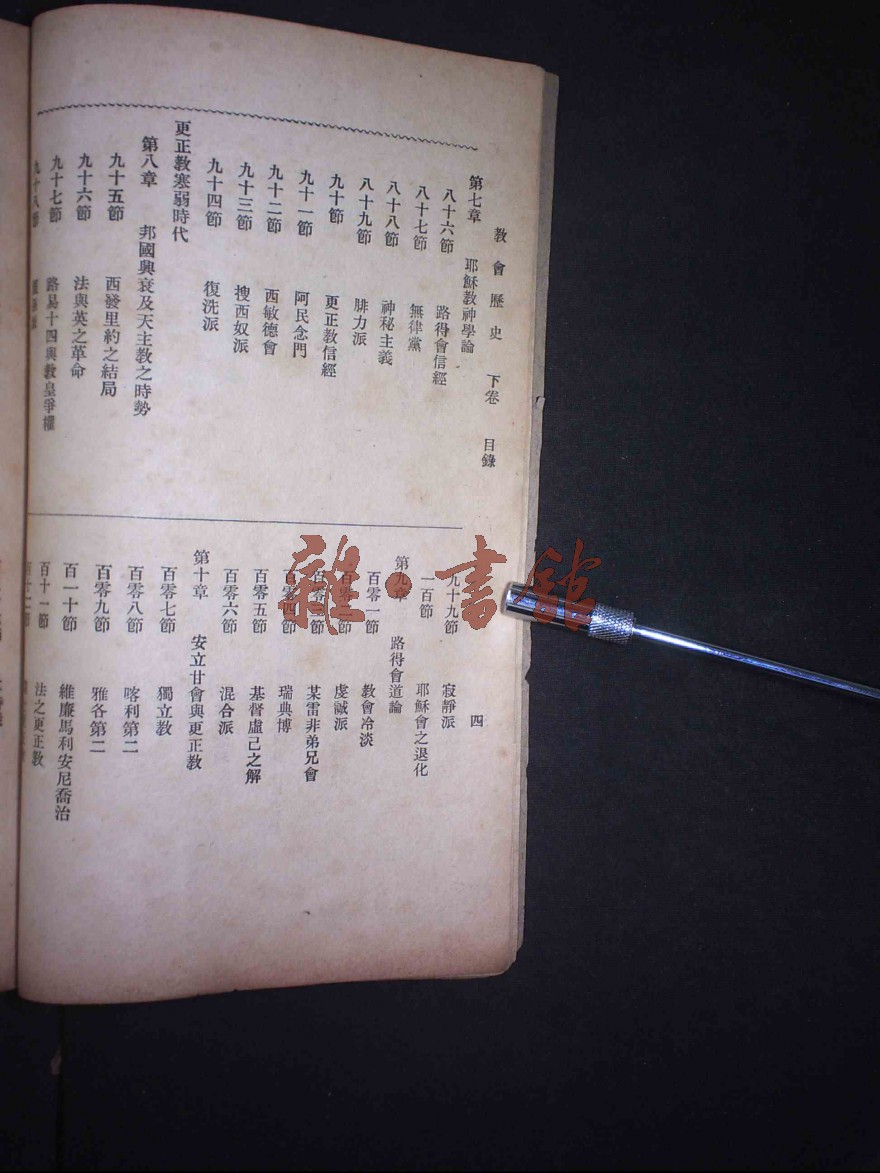 教會歷史 下卷 目錄 四
第七章 耶穌教神學論
八十六節 路得會信經
八十七節 無律黨
八十八節 神秘主義
八十九節 腓力派
九十節 更正教信經
九十一節 阿民念門
九十二節 西敏德會
九十三節 搜西奴派
九十四節 復洗派
更正教寒弱時代
第八章 邦國興衰及天主教之時勢
九十五節 西發里約之結局
九十六節 法與英之革命
九十七節 路易十四與教皇爭權
九十八節
九十九節 寂靜派
一百節 耶穌會之退化
第九章 路得會道論
百零一節 教會冷淡
百零二節 虔誠派
百零三節 某雷非弟兄會
百零四節 瑞典博
百零五節 基督虛己之解
百零六節 混合派
第十章 安立甘會與更正教
百零七節 獨立教
百零八節 喀利第二
百零九節 雅各第二
百一十節 維廉馬利安尼喬治
百十一節 法之更正教
雜·書館